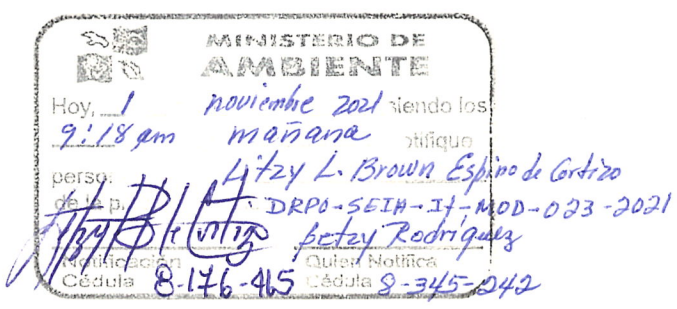 MINISTERIO DE
AMBIENTE
Hoy, 1 noviembre 2021 siendo los
9:18 am mañana notifique
perso. Litzy L. Brown Espino de Cortizo
de la p. DRPO-SEIA-IF-MOD-023-2021
Betzy Rodríguez
Notificación Quien Notifica
Cédula 8-176-465 Cédula 8-345-242